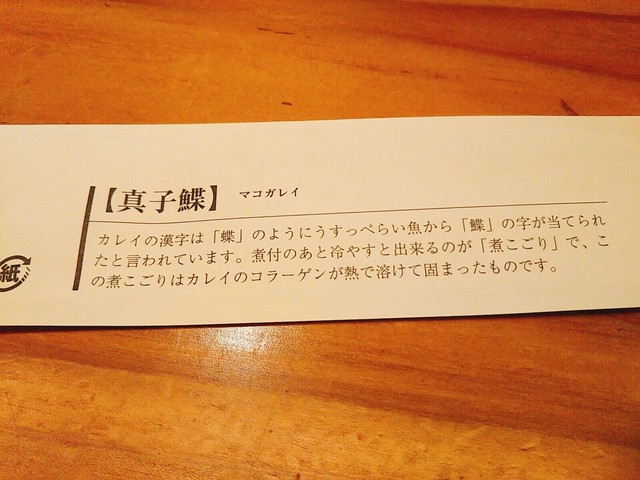 【真子鰈】 マコガレイ
カレイの漢字は「蝶」のようにうすっぺらい魚から「鰈」の字が当てられ
たと言われています。煮付のあと冷やすと出来るのが「煮こごり」で、こ
の煮こごりはカレイのコラーゲンが熱で溶けて固まったものです。
紙